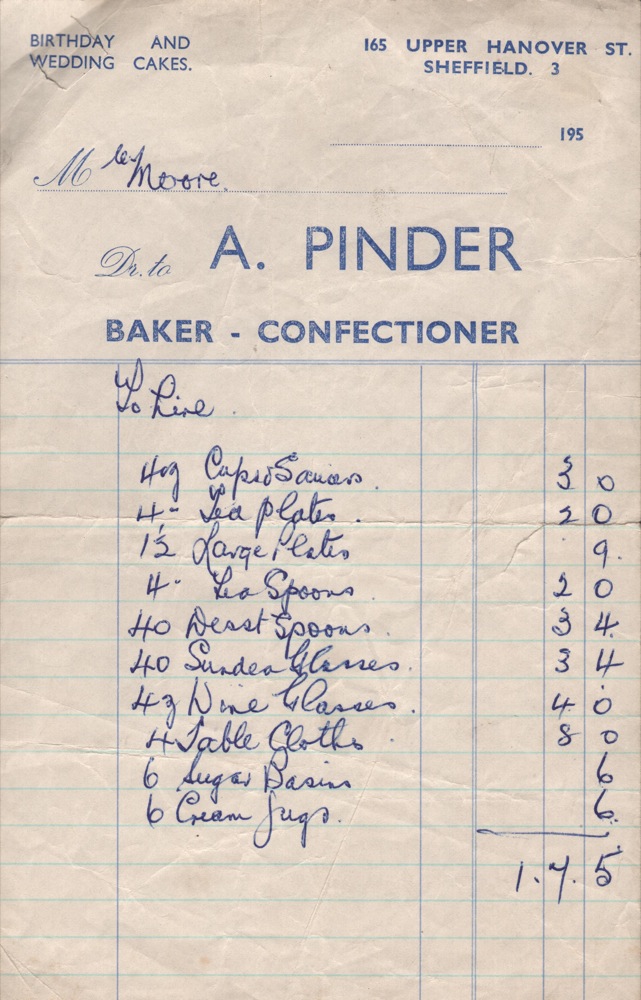 BIRTHDAY AND
WEDDING CAKES.
165 UPPER HANOVER ST.
SHEFFIELD. 3
195
M Moore.
Dr. to A. PINDER
BAKER - CONFECTIONER
To hire.
4 dz Cups & Saucers. 3 0
4 " Tea Plates. 2 0
1½ Large Plates 9.
4 " Tea Spoons. 2 0
40 Desst Spoons. 3 4.
40 Sundea Glasses. 3 4
4 dz Wine Glasses. 4 0
4 Table Cloths. 8 0
6 Sugar Basins 6
6 Cream Jugs. 6.
1.7.5